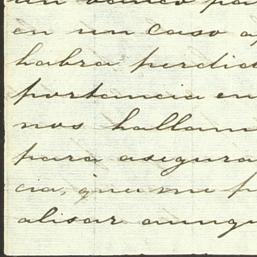 en un caso a
habra perdid
portancia en
nos hallam
para asegura
cia, que me p
alisar aunqu